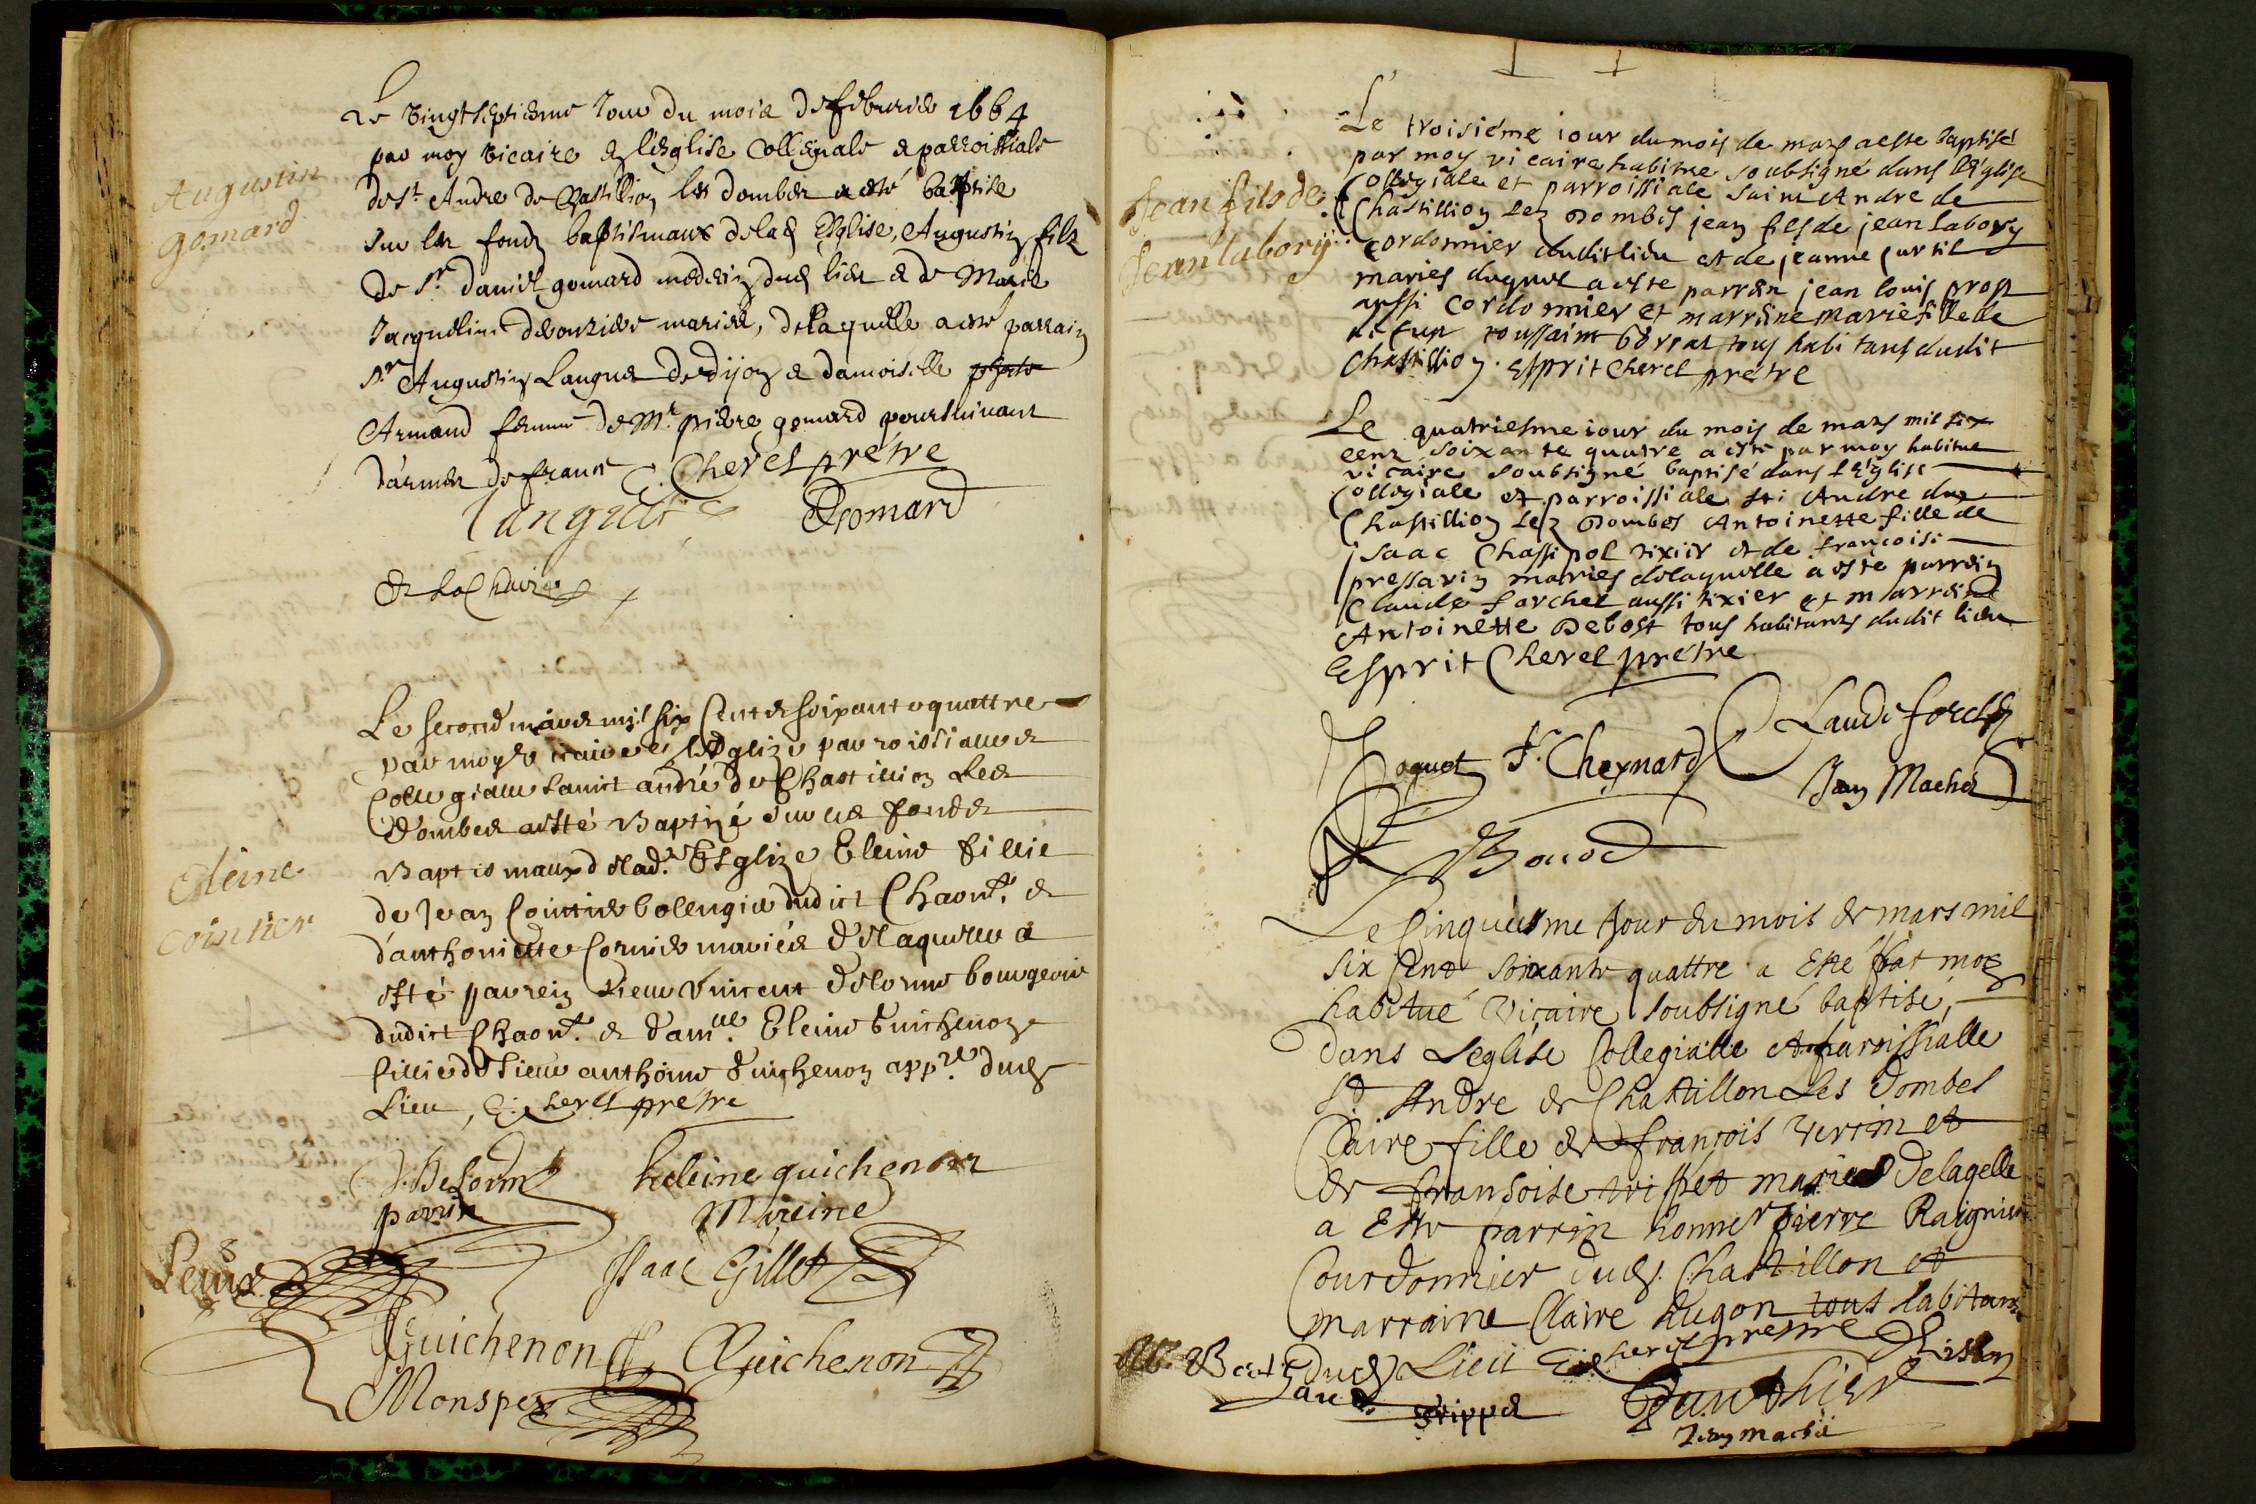 Le vingtseptiesme Jour du mois de febvrier 1664
par moy vicaire en l'esglise Collegiale & parroissiale
de St Andre de Chastillion les dombes a esté baptise
sur les fonds baptismaux de lad Esglise, Augustin filz
Augustin
gomard
de Sr daniel gomard medecin dud lieu & de Marie
Jacqueline mariés, delaquelle a esté parrain
Sr Augustin Languet de dijon & damoiselle
Armand femme de Mr pierre gomard poursuivant
d'armes de france E. Cherel prétre
Languet Gomard
De la Chaize
Le second mars mil six cent soixante quattre
par moy vicaire en L'Esglize parroissialle &
Collegialle sainct andré de Chastillion Les
Dombes a esté Baptizé sur les fonds
Baptismaux de lad. Esglize Eleine fillie
Eleine
cointier
de Jean Cointier bolengier dudict Chaon. &
d'anthoniette Cornier mariés delaquelle a
esté parrein sieur Vincent Delorme bourgeois
dudict Chaon. & dam.lle Eleine Guichenon
fillie de sieur anthoine Guichenon app.re dud
Lieu, E. Cherel prétre
V. Delorme heleine guichenon
parrin Mareine
Isaac Gillet
Guichenon Guichenon
Monspey
Le troisiéme iour du mois de mars a este baptisé
par moy vicaire habitue soubsigné dans l'Église
Collegiale et parroissiale saint Andre de
Jean fils de
Jean labory
Chastillion Lez Dombes jean fils de jean labory
cordonnier dudit lieu et de jeanne
maries duquel a este parrein jean louis
aussi cordonnier et marreine marie fille de
toussaint tous habitans dudit
Chastillion. Esprit Cherel prétre
Le quatriesme iour du mois de mars mil six
cent soixante quatre a esté par moy habitue
vicaire soubsigné baptisé dans l'Église
Collegiale et parroissiale St Andre du
Chastillion Lez Dombes Antoinette fille de
isaac Chassipol tixier et de françoise
pressavin maries delaquelle a este parrein
Claude forchet aussi tixier et marreine
Antoinette Debost tous habitants dudit lieu
Esprit Cherel prétre
Joquet F. Cheynard Claude forchet
Jean Machet
Bonod
Le Cinquiesme Jour du mois de mars mil
six cent soixante quattre a Este par moy
habitué Vicaire soubsigné baptisé,
dans L'eglise Collegialle et parroissialle
St. Andre de Chastillon Les Dombes
Claire fille de françois verin et
de fransoise trippet maries Delagelle
a Este parrin honner pierre Raignier
Courdonnier dud. Chastillon et
marraine Claire hugon tous habitans
dud Lieu E. Cherel prestre
trippet Gauthier
Jean machet